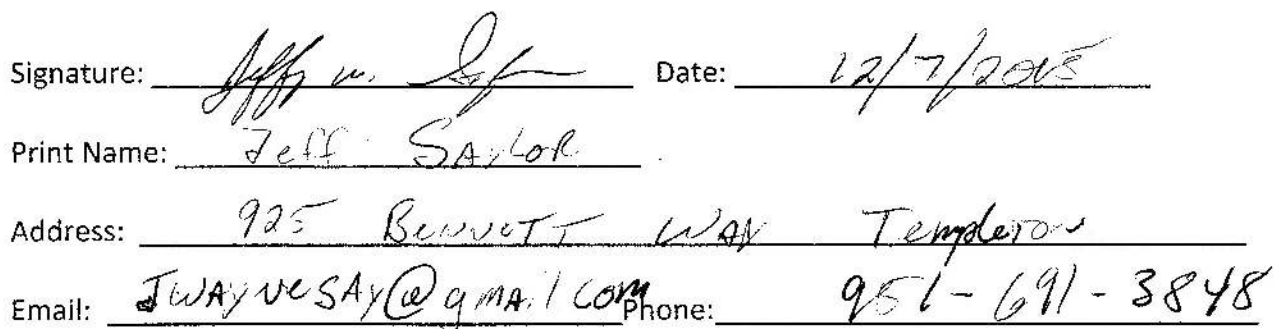 Signature: Jeffy w. Say Date: 12/7/2015
Print Name: Jeff SAYLOR
Address: 925 BENNETT WAY Templeton
Email: JWAYNESAY@gmail.com Phone: 951-691-3848